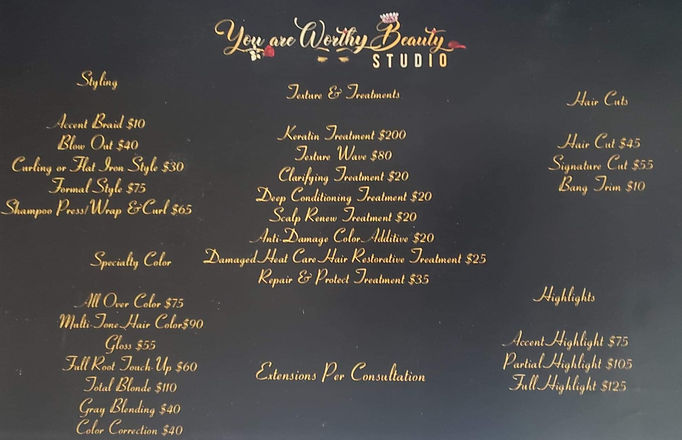 You are Worthy Beauty
STUDIO
Styling
Accent Braid $10
Blow Out $40
Curling or Flat Iron Style $30
Formal Style $75
Shampoo Press/Wrap & Curl $65
Specialty Color
All Over Color $75
Multi-Tone Hair Color $90
Gloss $55
Full Root Touch-Up $60
Total Blonde $110
Gray Blending $40
Color Correction $40
Texture & Treatments
Keratin Treatment $200
Texture Wave $80
Clarifying Treatment $20
Deep Conditioning Treatment $20
Scalp Renew Treatment $20
Anti-Damage Color Additive $20
Damaged Heat Care Hair Restorative Treatment $25
Repair & Protect Treatment $35
Extensions Per Consultation
Hair Cuts
Hair Cut $45
Signature Cut $55
Bang Trim $10
Highlights
Accent Highlight $75
Partial Highlight $105
Full Highlight $125